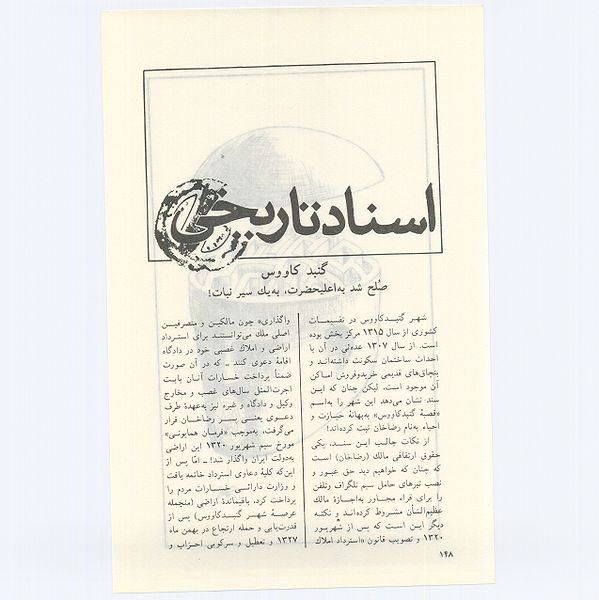 اسناد تاریخی
گنبد کاووس
صُلح شد به‌اعلیحضرت، به‌یك سیر نبات!
شهر گنبدکاووس در تقسیمات
کشوری از سال ۱۳۱۵ مرکز بخش بوده
است. از سال ۱۳۰۷ عده‌ئی در آن با
احداث ساختمان سکونت داشته‌اند و
بنچاق‌های قدیمی خریدوفروش اماکن
آن موجود است. لیکن چنان که این
سند نشان می‌دهد این شهر را به‌اسم
«قصبهٔ گنبدکاووس» به‌بهانهٔ حیازت و
احیاء به‌نام رضاخان ثبت کرده‌اند!
از نکات جالب این سند، یکی
حقوق ارتفاقی مالك (رضاخان) است
که چنان که خواهیم دید حق عبور و
نصب تیرهای حامل سیم تلگراف وتلفن
را برای قراء مجاور به‌اجازهٔ مالك
عظیم‌الشأن مشروط کرده‌اند و نکته
دیگر این است که پس از شهریور
۱۳۲۰ و تصویب قانون «استرداد املاك
واگذاری» چون مالکین و متصرفین
اصلی ملك می‌توانستند برای استرداد
اراضی و املاك غصبی خود در دادگاه
اقامهٔ دعوی کنند ـ که در آن صورت
ضمناً پرداخت خسارات آنان بابت
اجرت‌المثل سال‌های غصب و مخارج
وکیل و دادگاه و غیره نیز به‌عهدهٔ طرف
دعوی یعنی پسر رضاخان قرار
می‌گرفت، به‌موجب «فرمان همایونی»
مورخ سیم شهریور ۱۳۲۰ این اراضی
به‌دولت ایران واگذار شد! ـ امّا پس از
این‌که کلیهٔ دعاوی استرداد خاتمه یافت
و وزارت دارائی خسارات مردم را
پرداخت کرد، باقیماندهٔ اراضی (منجمله
عرصهٔ شهر گنبدکاووس) پس از
قدرت‌یابی و حمله ارتجاع در بهمن ماه
۱۳۲۷ و تعطیل و سرکوبی احزاب و
۱۴۸